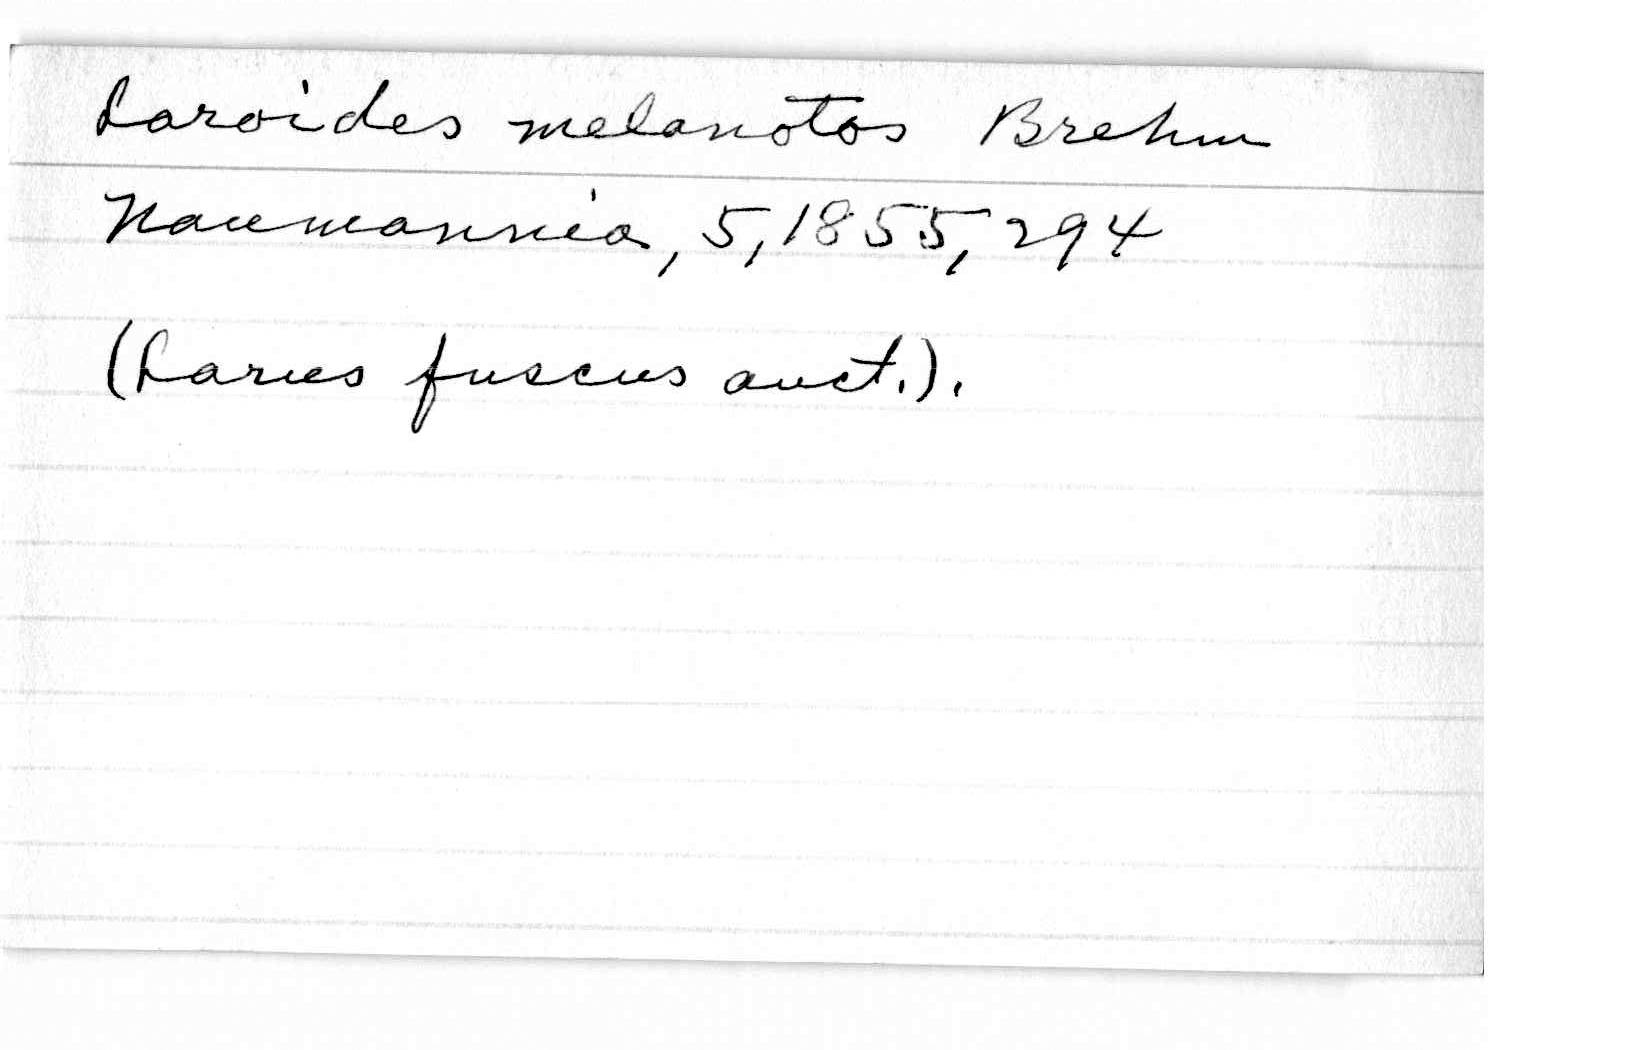 Laroides melanotos Brehm
Naumannia, 5, 1855, 294
(Larus fuscus auct.).